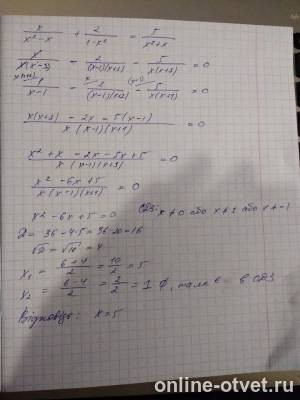 x/(x²-x) + 2/(1-x²) = 5/(x²+x)
2/((x-1)(x+1)) - 5/(x(x+1)) = 0
/(x-1) - 2/((x-1)(x+1)) - 5/(x(x+1)) = 0
(x(x+1) - 2x - 5(x-1))/(x(x-1)(x+1)) = 0
(x² + x - 2x - 5x + 5)/(x(x-1)(x+1)) = 0
(x² - 6x + 5)/(x(x-1)(x+1)) = 0
x² - 6x + 5 = 0 ОДЗ: x ≠ 0 або x ≠ 1 або x ≠ -1
D = 36 - 4·5 = 36 - 20 = 16
√D = √16 = 4
x₁ = (6+4)/2 = 10/2 = 5
x₂ = (6-4)/2 = 2/2 = 1 ∅, в ОДЗ
Відповідь: x = 5
online-otvet.ru